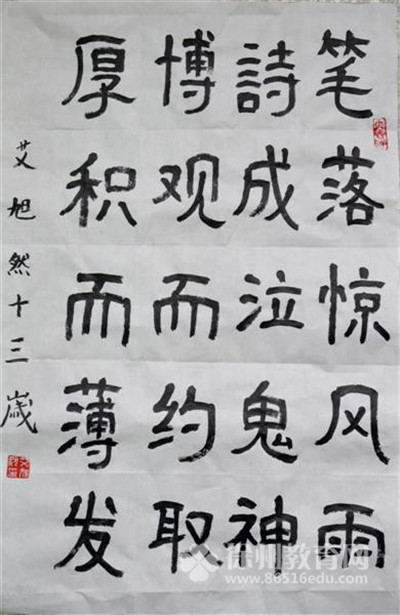 笔落惊风雨
詩成泣鬼神
博观而约取
厚积而薄发
艾旭然十三歲
徐州教育网
www.86516edu.com